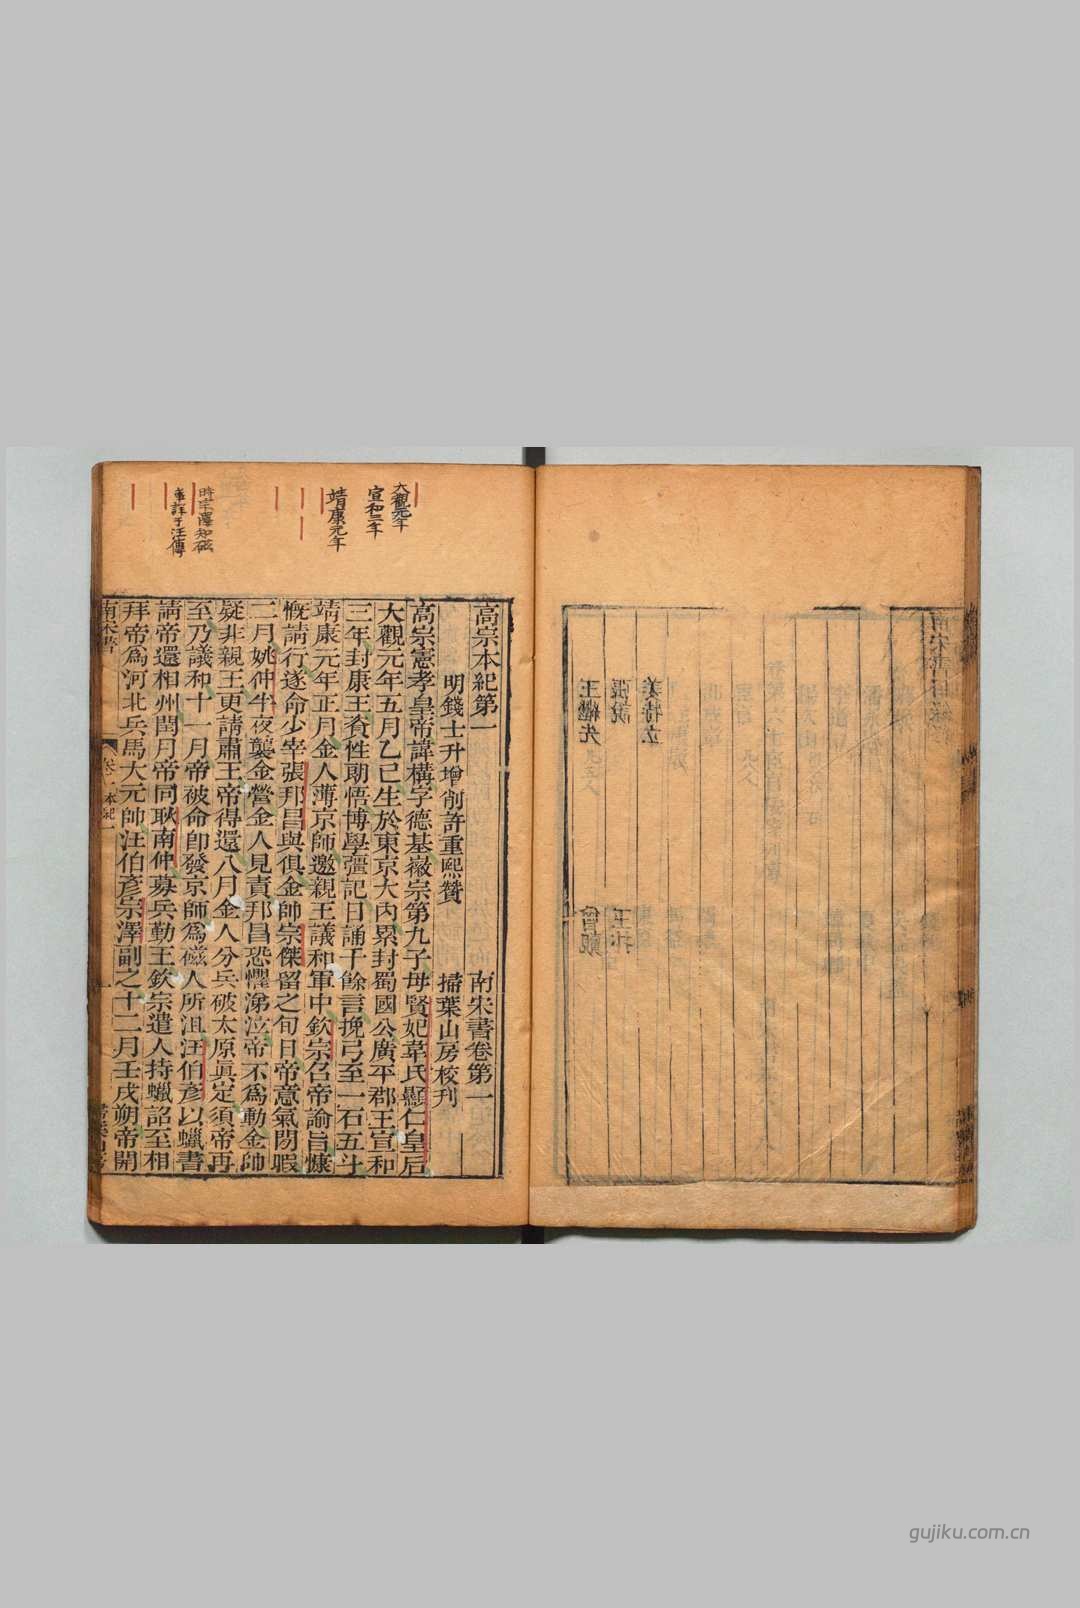 姜特立
張說
王抃
王繼先
曾覿
大觀元年
宣和三年
靖康元年
時宗澤知磁
事詳于汪傳
高宗本紀第一
南宋書卷第一
明錢士升增削許重熙贊
掃葉山房校刊
高宗憲孝皇帝諱構字德基徽宗第九子母賢妃韋氏顯仁皇后
大觀元年五月乙己生於東京大內累封蜀國公廣平郡王宣和
三年封康王資性朗悟博學彊記日誦千餘言挽弓至一石五斗
靖康元年正月金人薄京師邀親王議和軍中欽宗召帝諭旨慷
慨請行遂命少宰張邦昌與俱金帥宗傑留之旬日帝意氣閒暇
二月姚仲半夜襲金營金人見責邦昌恐懼涕泣帝不為動金帥
疑非親王更請肅王帝得還八月金人分兵破太原真定須帝再
至乃議和十一月帝被命卽發京師為磁人所沮汪伯彥以蠟書
請帝還相州閏月帝同耿南仲募兵勤王欽宗遣人持蠟詔至相
拜帝為河北兵馬大元帥汪伯彥宗澤副之十二月壬戌朔帝開
南宋書
卷一本紀
一
gujiku.com.cn